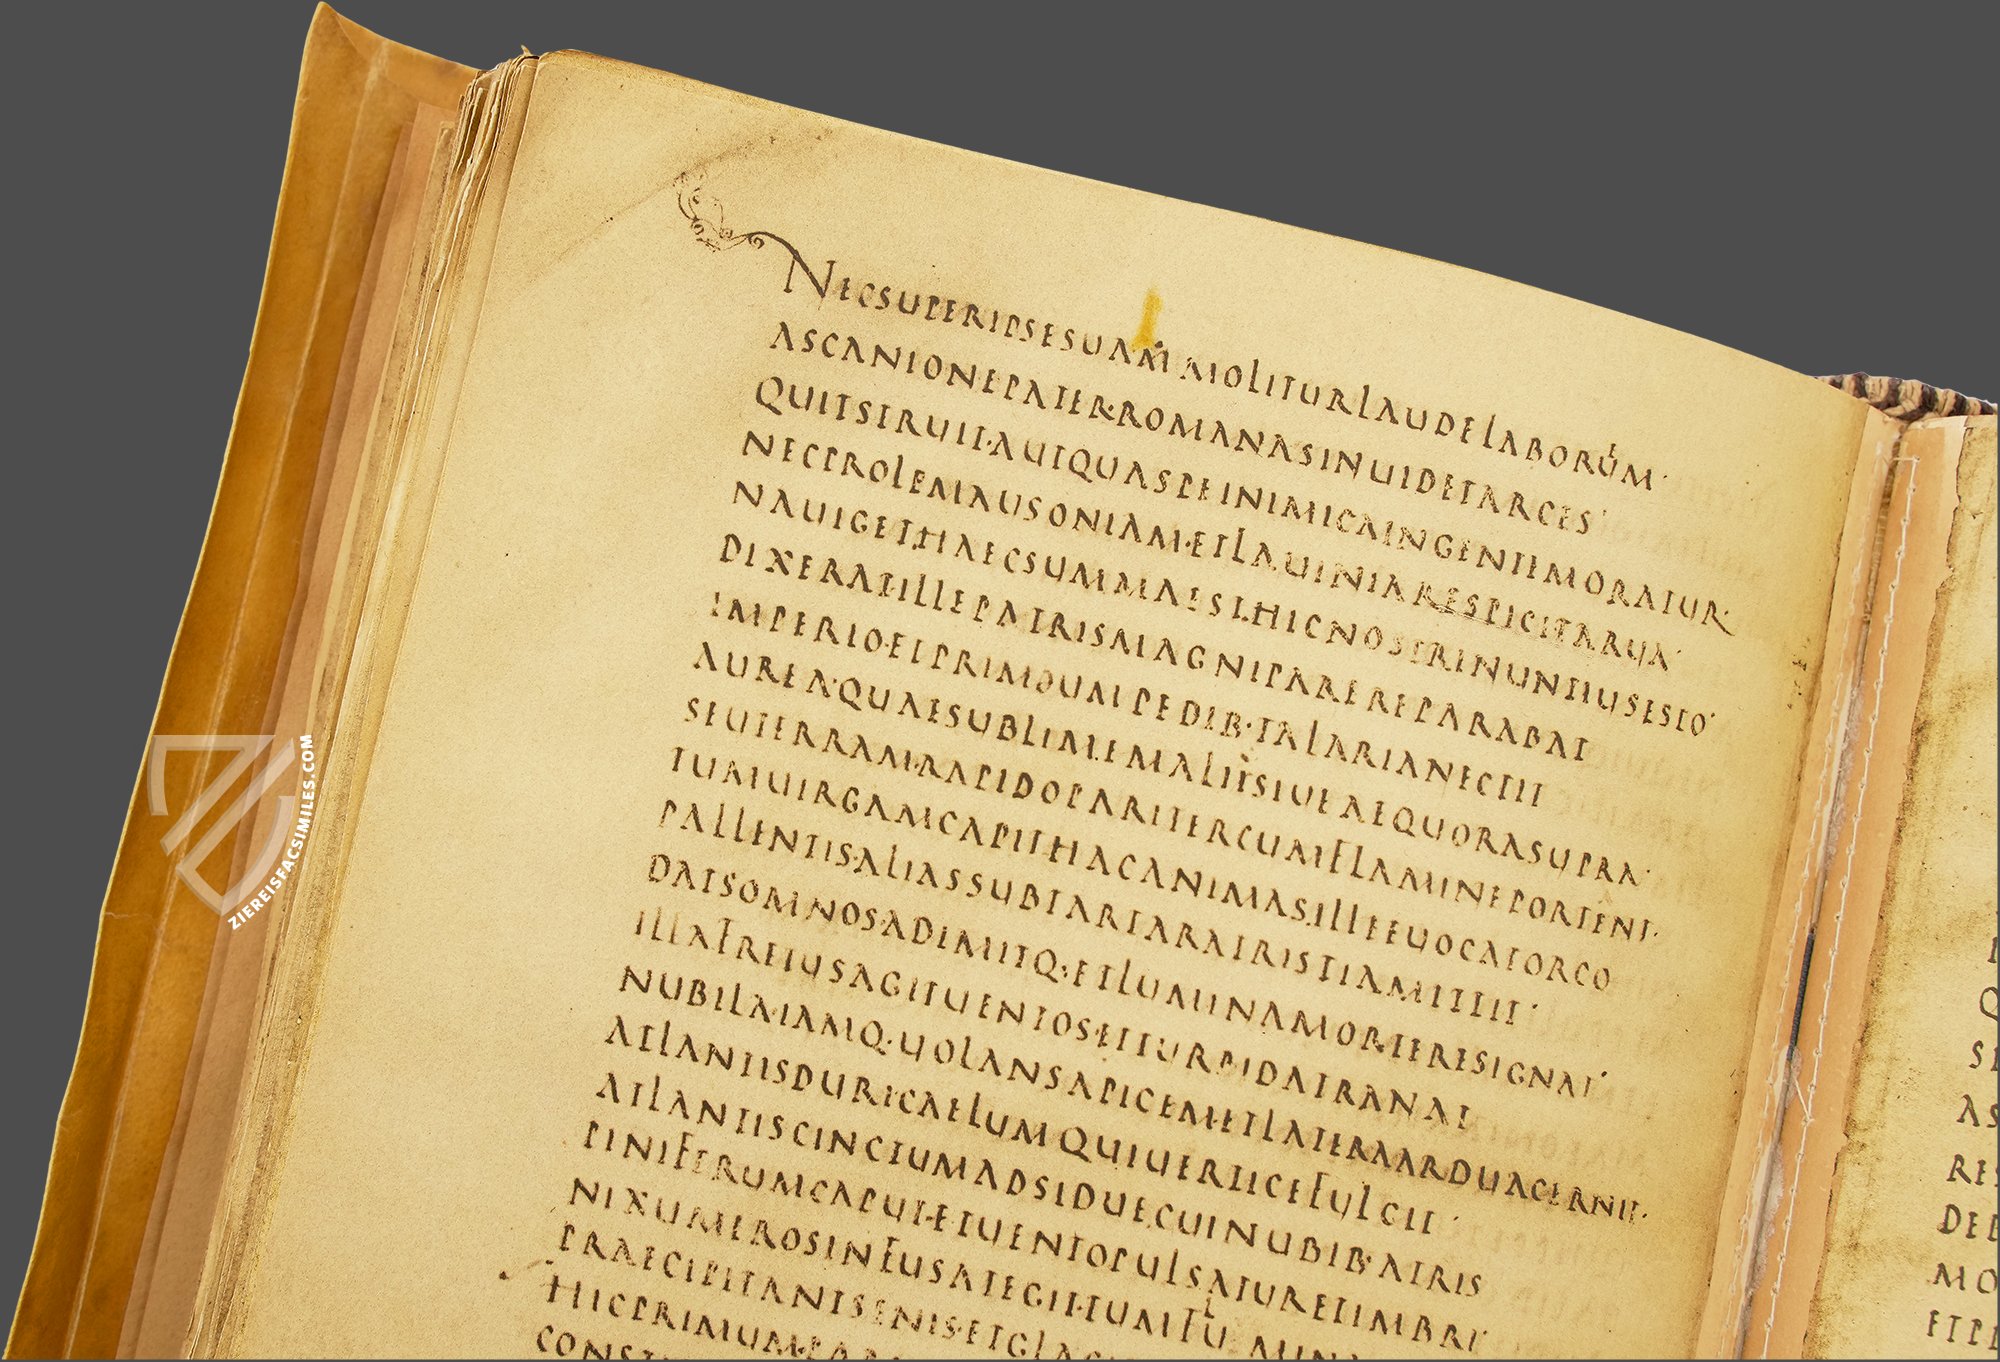 NECSUPERIPSESUAM MOLITURLAUDELABORUM·
ASCANIONEPATER·ROMANASINUIDETARCES·
QUITSTRUIT·AUTQUASPEINIMICAINGENTEMORATUR·
NECPROLEMAUSONIAM·ETLAUINIARESPICITARUA·
NAUIGET·HAECSUMMAEST·HICNOSTRINUNTIUSESTO·
DIXERAT·ILLEPATRISMAGNIPAREREPARABAT
IMPERIO·ETPRIMUMPEDIB·TALARIANECTIT
AUREA·QUAESUBLIMEMALITSIUEAEQUORASUPRA·
SEUTERRAM·RAPIDOPARITERCUMFLAMINEPORTENT·
TUMUIRGAMCAPIT·HACANIMAS·ILLEEUOCATORCO
PALLENTIS·ALIASSUBTARTARATRISTIAMITTIT·
DATSOMNOS·ADIMITQ·ETLUMINAMORTERESIGNAT·
ILLAFRETUSAGITUENTOS·ETTURPIDATRANAT
NUBILA·IAMQ·UOLANSAPICEM·ETLATERAARDUACERNIT·
ATLANTISDURICAELUMQUIUERTICEFULCIT·
ATLANTISCINCTUMADSIDUECUINUBIB·ATRIS
PINIFERUMCAPUT·ETUENTOPULSATURETIMBRI·
NIXUMEROSINFUSATEGIT·TUMFLU MIN
PRAECIPITANTSENIS·ETGLA
HICPRIMUM·PAR
CONST
Q
SE
AS
RES
DEE
MO
ETPE
ZIEREISFACSIMILES.COM